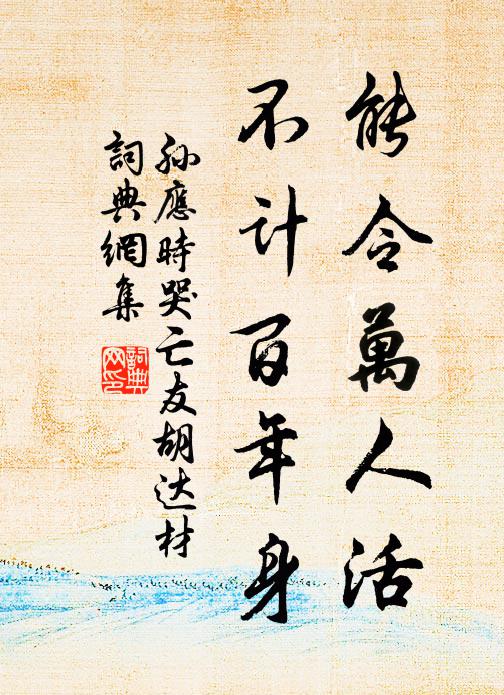 能令萬人活
不計百年身
孫應時哭亡友胡达材
詞典網集
詞典網印